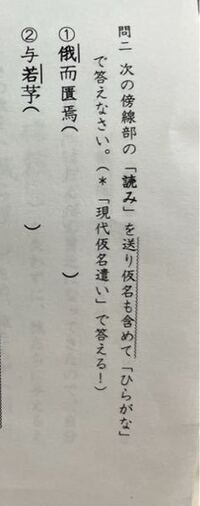 問二 次の傍線部の「読み」を送り仮名も含めて「ひらがな」
で答えなさい。(*「現代仮名遣い」で答える!)
①俄而匿焉( )
②与若芧( )